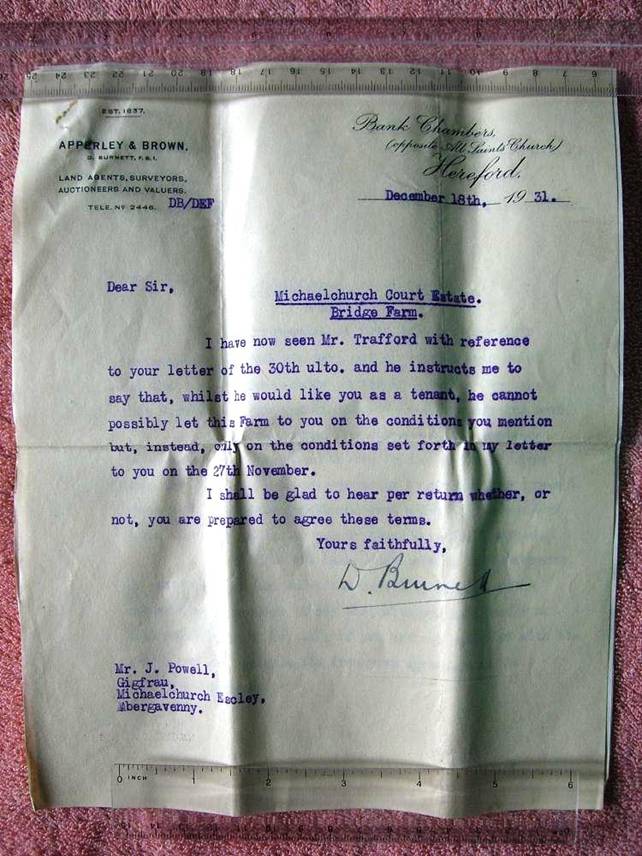 EST. 1837.
APPERLEY & BROWN.
D. BURNETT, F.S.I.
LAND AGENTS, SURVEYORS,
AUCTIONEERS AND VALUERS.
TELE. Nº 2446.
DB/DEF
Bank Chambers,
(opposite All Saints Church)
Hereford.
December 18th, 1931.
Dear Sir,
Michaelchurch Court Estate.
Bridge Farm.
I have now seen Mr. Trafford with reference
to your letter of the 30th ulto. and he instructs me to
say that, whilst he would like you as a tenant, he cannot
possibly let this Farm to you on the conditions you mention
but, instead, only on the conditions set forth in my letter
to you on the 27th November.
I shall be glad to hear per return whether, or
not, you are prepared to agree these terms.
Yours faithfully,
D. Burnett
Mr. J. Powell,
Gigfrau,
Michaelchurch Escley,
Abergavenny.
0 INCH 1 2 3 4 5 6